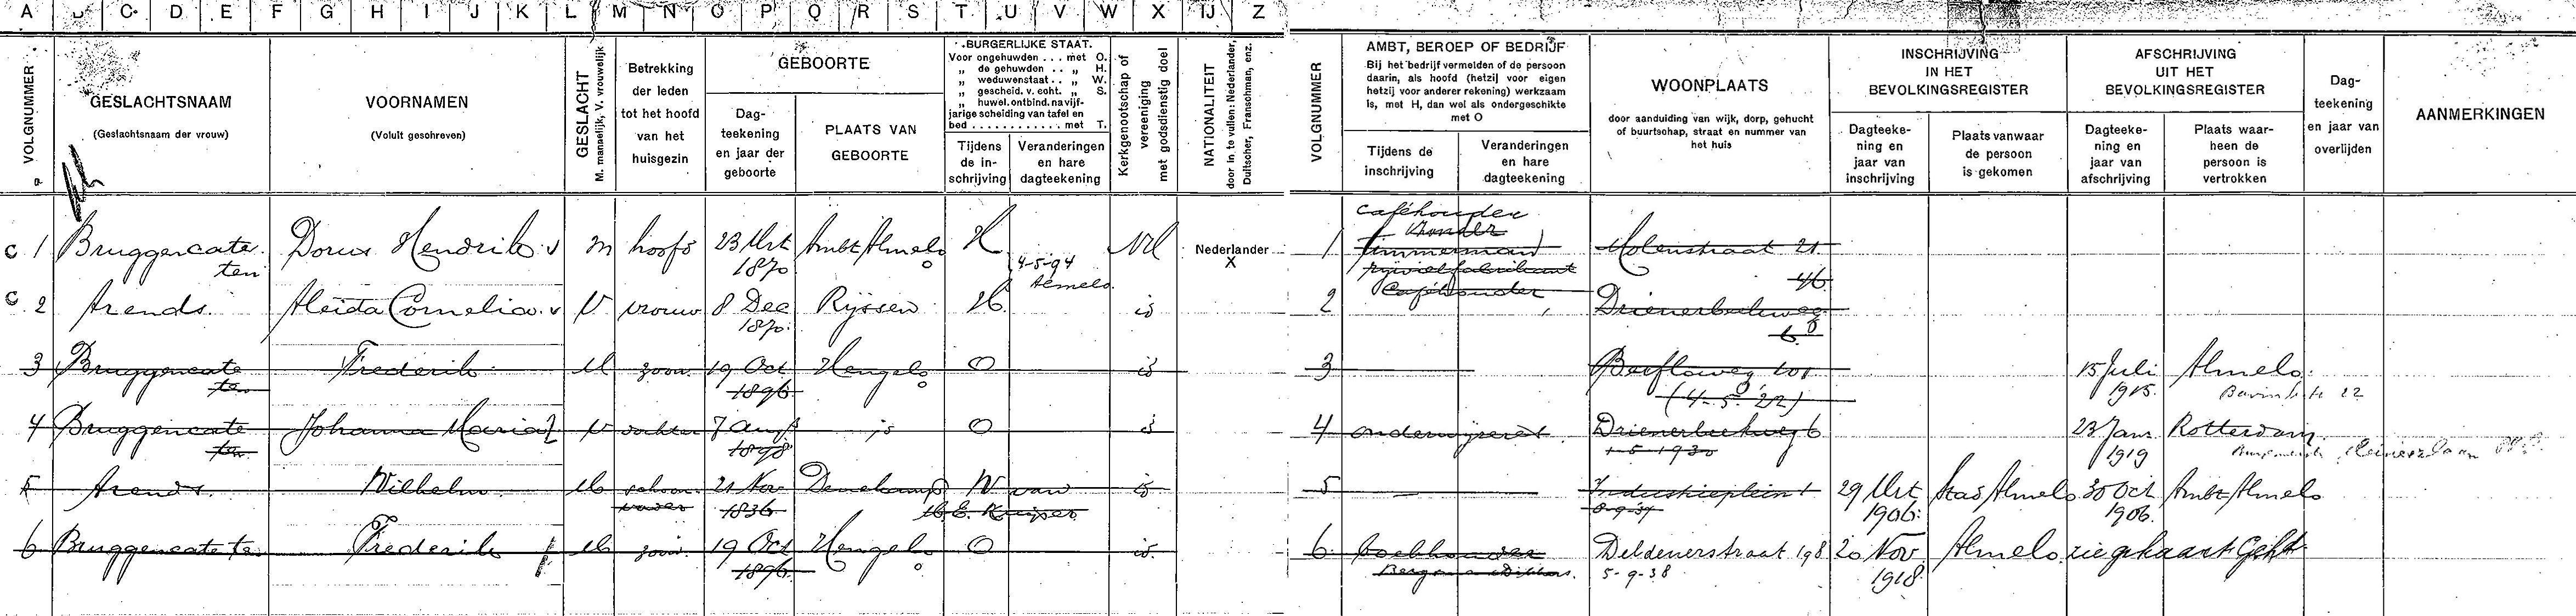 A B C D E F G H I J K L M N O P Q R S T U V W X IJ Z
VOLGNUMMER
GESLACHTSNAAM
(Geslachtsnaam der vrouw)
VOORNAMEN
(Voluit geschreven)
GESLACHT
M. mannelijk, V. vrouwelijk
Betrekking
der leden
tot het hoofd
van het
huisgezin
GEBOORTE
Dag-
teekening
en jaar der
geboorte
PLAATS VAN
GEBOORTE
BURGERLIJKE STAAT.
Voor ongehuwden . . . met O.
„ de gehuwden . . „ H.
„ weduwenstaat . . „ W.
„ gescheid. v. echt. „ S.
„ huwel. ontbind. na vijf-
jarige scheiding van tafel en
bed . . . . . . . . . . . . met T.
Tijdens
de in-
schrijving
Veranderingen
en hare
dagteekening
Kerkgenootschap of
vereeniging
met godsdienstig doel
NATIONALITEIT
door in te vullen: Nederlander,
Duitscher, Franschman, enz.
VOLGNUMMER
AMBT, BEROEP OF BEDRIJF
Bij het bedrijf vermelden of de persoon
daarin, als hoofd (hetzij voor eigen
hetzij voor anderer rekening) werkzaam
is, met H, dan wel als ondergeschikte
met O
Tijdens de
inschrijving
Veranderingen
en hare
dagteekening
WOONPLAATS
door aanduiding van wijk, dorp, gehucht
of buurtschap, straat en nummer van
het huis
INSCHRIJVING
IN HET
BEVOLKINGSREGISTER
Dagteeke-
ning en
jaar van
inschrijving
Plaats vanwaar
de persoon
is gekomen
AFSCHRIJVING
UIT HET
BEVOLKINGSREGISTER
Dagteeke-
ning en
jaar van
afschrijving
Plaats waar-
heen de
persoon is
vertrokken
Dag-
teekening
en jaar van
overlijden
AANMERKINGEN
c 1 Bruggencate Dorus Hendrik v m hoofd 23 Mrt Ambt Almelo H NH Nederlander
ten 1870 4-5-94 X
Almelo
c 2 Arends Aleida Cornelia v V vrouw 8 Dec Rijssen H id
1870
3 Bruggencate Frederik M zoon 19 Oct Hengelo O id
ten 1896
4 Bruggencate Johanna Maria V dochter 7 Aug id O id
ten 1898
5 Arends Wilhelm M schoon 21 Nov Denekamp W van id
vader 1836 Kuiper
6 Bruggencate ten Frederik M zoon 19 Oct Hengelo O id
1896
caféhouder
1 Timmerman Molenstraat 21
rijwielfabrikant 46
2 Caféhouder Drienerbeekweg
6
3 101 15 Juli Almelo
(4-5-'22) 1915 22
4 onderwijzeres Drienerbeekweg 6 23 Jan Rotterdam
1-5-1930 1919
5 Industrieplein 1 29 Mrt Stad Almelo 30 Oct Ambt Almelo
8-9-37 1906 1906
6 boekhouder Deldenerstraat 198 20 Nov Almelo zie gekaart Geh
5-9-38 1918